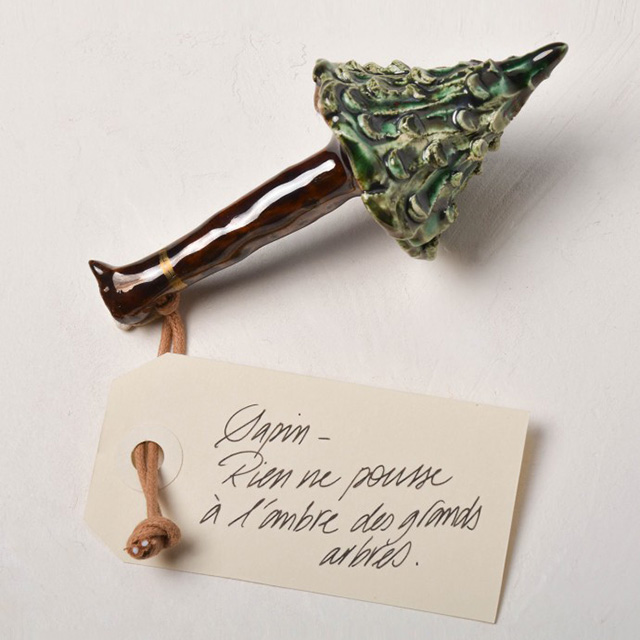 Sapin -
Rien ne pousse
à l'ombre des grands
arbres.